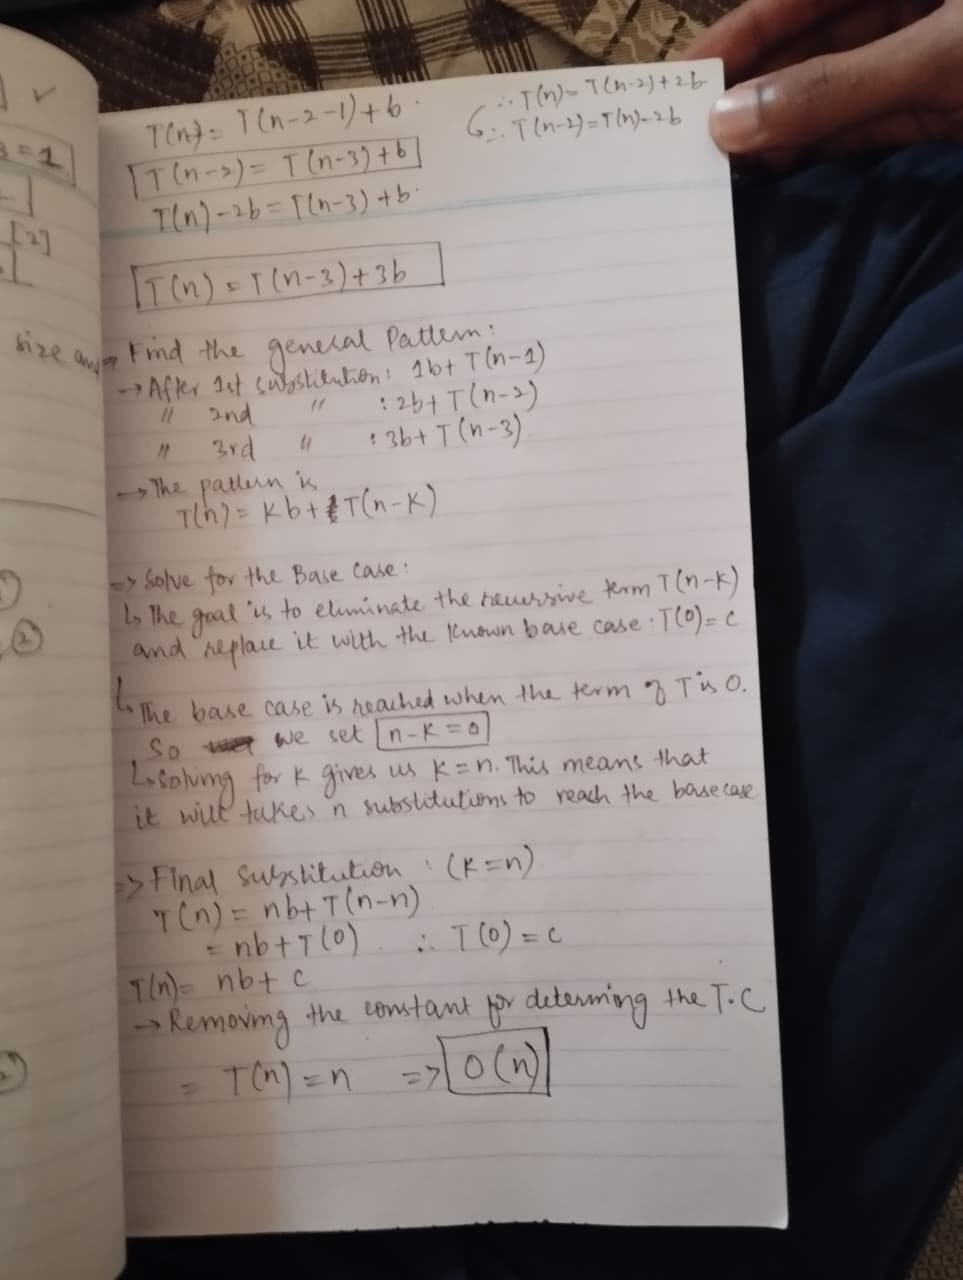 T(n) = T(n-2-1)+b
∴ T(n) = T(n-2)+2b
∴ T(n-2) = T(n)-2b
T(n-2) = T(n-3)+b
T(n)-2b = T(n-3)+b
T(n) = T(n-3)+3b
3=1
[2]
size
=> Find the general Pattern:
→ After 1st substitution: 1b+T(n-1)
" 2nd " : 2b+T(n-2)
" 3rd " : 3b+T(n-3)
→ The pattern is
T(n) = Kb+T(n-K)
=> Solve for the Base Case:
↳ The goal is to eliminate the recursive term T(n-K)
and replace it with the known base case: T(0)=c
↳ The base case is reached when the term of T is 0.
So we set n-K=0
↳ Solving for K gives us K=n. This means that
it will takes n substitutions to reach the base case
=> Final Substitution : (K=n)
T(n) = nb+T(n-n)
= nb+T(0) ∴ T(0)=c
T(n) = nb+c
→ Removing the constant for determing the T.C
= T(n)=n => O(n)
2